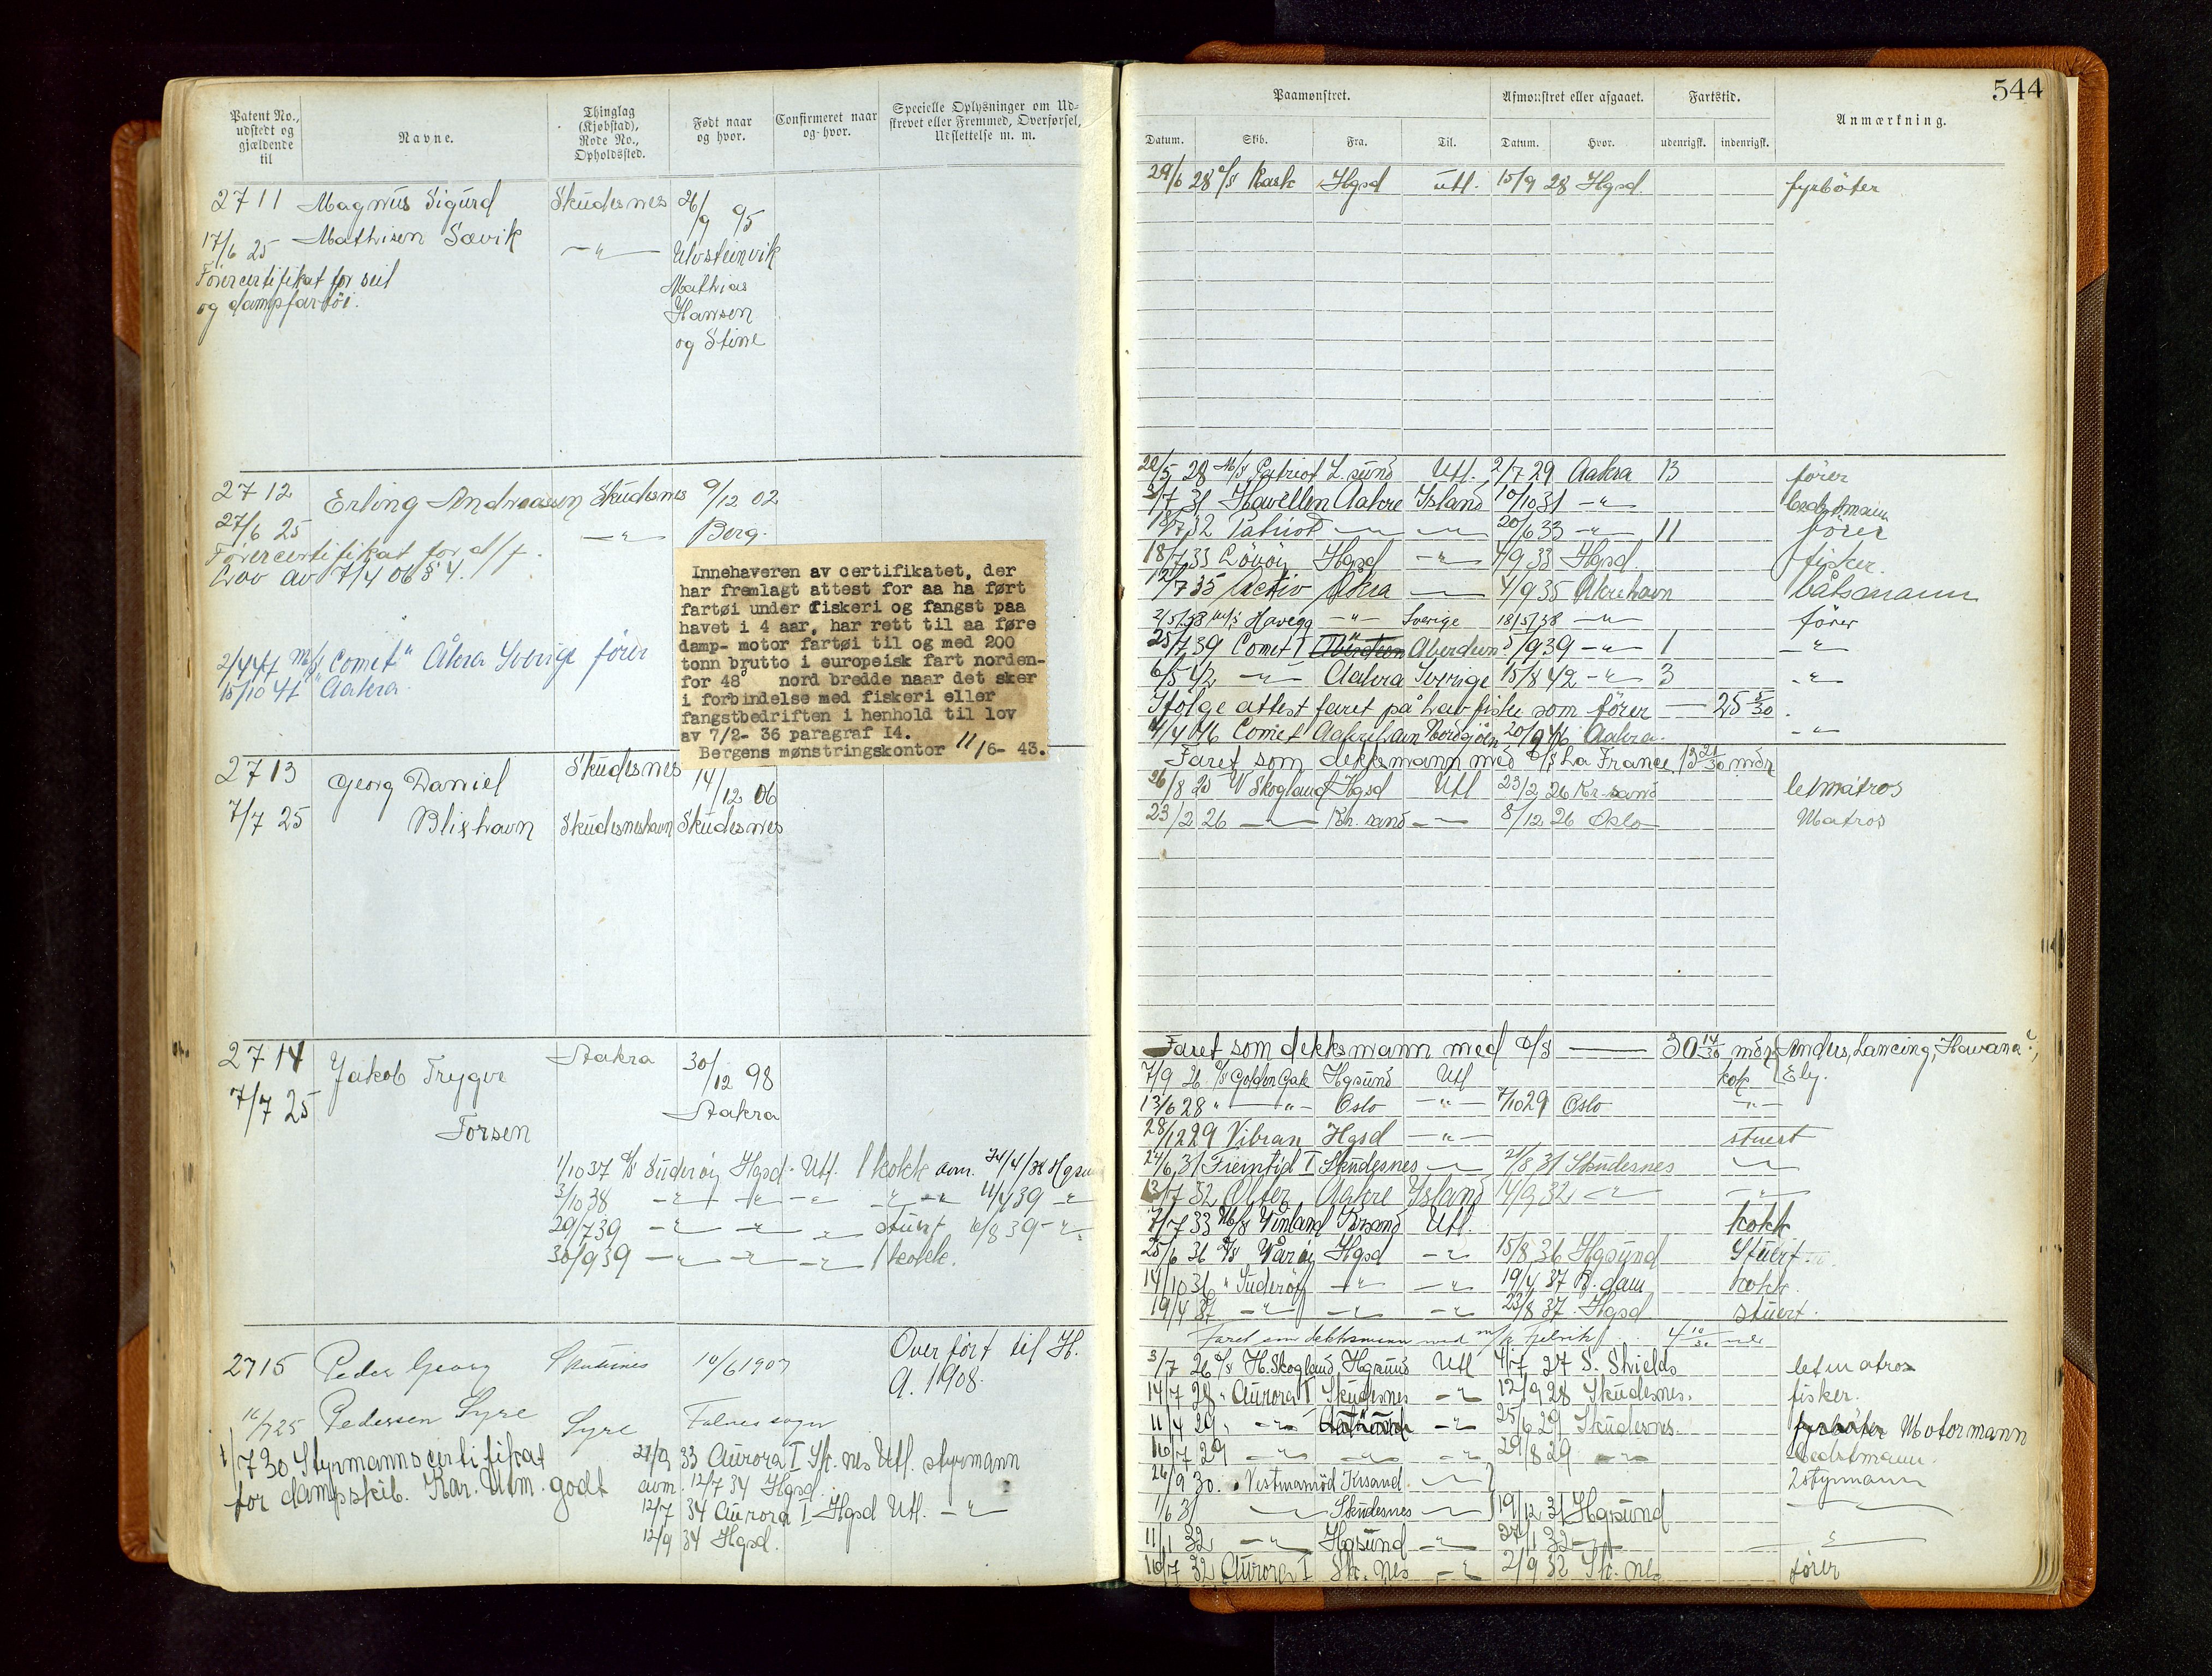 544
Patent No., udstedt og gjældende til
Navne.
Thinglag (Kjøbstad), Rode No., Opholdssted.
Født naar og hvor.
Confirmeret naar og hvor.
Specielle Oplysninger om Ud-
strevet eller Fremmed, Overførsel,
Udslettelse m. m.
Paamønstret.
Afmønstret eller afgaaet.
Fartstid.
Anmærkning.
Datum. Skib. Fra. Til. Datum. Hvor. udenrigsk. indenrigsk.
2711 Magnus Sigurd Skudesnes 26/9 95
17/6 25 Mathisen Sævik —"— Ulvsteinvik
Førercertifikat for seil Mathias
og dampfartøi. Hansen
og Stine
2712 Erling Andreassen Skudesnes 9/12 02
27/6 25 —"— Berg.
Førercertifikat for d/f.
Lov av 7/4 06 § 4.
2/4 47 M/S "Comet" Åkra Sverige fører
15/10 47 "Aakra.
Innehaveren av certifikatet, der
har fremlagt attest for aa ha ført
fartøi under fiskeri og fangst paa
havet i 4 aar, har rett til aa føre
damp- motor fartøi til og med 200
tonn brutto i europeisk fart norden-
for 48° nord bredde naar det sker
i forbindelse med fiskeri eller
fangstbedriften i henhold til lov
av 7/2- 36 paragraf I4.
Bergens mønstringskontor 11/6- 43.
2713 Georg Daniel Skudesnes 14/12 06
7/7 25 Blixhavn Skudesneshavn Skudesnes
2714 Jakob Trygve Aakra 30/12 98
7/7 25 Torsen Aakra
1/10 37 d/s Suderøy Hgsd. Utl. 1 kokk avm. 24/4/38 Hgsund
3/10 38 —"— —"— —"— —"— 11/4 39 —"—
29/7 39 —"— —"— —"— Stuert 6/8 39 —"—
30/9 39 —"— —"— —"— 1 kokk.
2715 Peder Georg Skudesnes 10/6 1907 Overført til H.
A. 1908.
16/7 25 Pedersen Syre Syre Falnes sogn
1/7 30 Styrmannscertifikat 27/9 33 Aurora I Sk.nes Utl. styrmann
for dampskib. Kar. Utm. godt avm. 12/7 34 Hgsd.
12/7 34 Aurora I Hgsd Utl. —"—
12/9 34 Hgsd.
29/6 28 d/s Rask Hgsd utl. 15/9 28 Hgsd. fyrbøter
22/5 28 M/S Patriot L.sund Utl. 2/7 29 Aakra 13 fører
3/7 31 Havellen Aakre Island 10/10 31 —"— bedstmann
18/7 32 Patriot —"— —"— 20/6 33 —"— 11 fører
18/7 33 Løvøy Hgsd —"— 4/9 33 Hgsd fisker.
12/7 35 Activ Åkra —"— 4/9 35 Åkrehavn båtsmann
2/5/38 M/S Havegg —"— Sverige 18/5/38 —"— fører
25/7 39 Comet I Aberdeen Aberdeen 5/9 39 —"— 1 —"—
6/5 42 —"— Aakra Sverige 15/8 42 —"— 3 —"—
Ifølge attest faret på havfiske som fører — 25 5/30
4/4 46 Comet Aakrehavn Nordsjøen 20/9 46 Aakra. —"—
Faret som dekksmann med d/s La France. 13 21/30 mdr
26/8 25 d/s Skogland Hgsd Utl 23/2 26 Kr.sand letmatros
23/2 26 —"— Kr.sand —"— 8/12 26 Oslo Matros
Faret som dekksmann med d/s — 30 14/30 mdr Anders, Lancing, Havana,
7/9 26 d/s Golden Gate Hgsund Utl kok Ely.
13/6 28 " —"— Oslo —"— 7/10 29 Oslo —"—
28/12 29 Vibran Hgsd —"— stuert
24/6 31 Fremtid I Skudesnes —"— 21/8 31 Skudesnes —"—
13/7 32 Olter Aakre Island 14/9 32 —"— —"—
7/7 33 M/S Vinland Krsand Utl. kokk
25/6 36 d/s Vårøy Hgsd —"— 15/8 36 Hgsund Stuert
14/10 36 " Suderøy —"— —"— 19/4 37 R.dam kokk
19/4 37 —"— —"— —"— 23/8 37 Hgsd stuert.
Faret som dekksmann med m/k Fjelvik 4 10/30 mdr
3/7 26 d/s H.Skogland Hgsund Utl 4/7 27 S. Shields letmatros
14/7 28 " Aurora I Skudesnes —"— 12/9 28 Skudesnes. fisker.
11/4 29 " —"— —"— 25/6 29 Skudesnes. fyrbøter Motormann
16/7 29 —"— —"— —"— 29/8 29 —"— bedstmann.
26/9 30 " Vestmanrød Krsand. —"— 2styrmann
1/6 31 —"— Skudesnes —"— 19/12 31 Hgsund —"—
11/1 32 —"— Hgsund —"— 27/1 32 —"— —"—
16/7 32 Aurora I Sk.nes —"— 2/9 32 Sk.nes fører